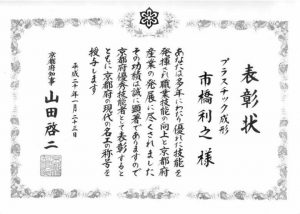 表彰状
プラスチック成形
市橋利之 様
あなたは多年にわたり優れた技能を
発揮され職業技能の向上と京都府
産業の発展に尽くされました
その功績は誠に顕著でありますので
京都府優秀技能者として表彰すると
ともに京都府の現代の名工の称号を
授与します
平成二十年一月二十三日
京都府知事 山田啓二